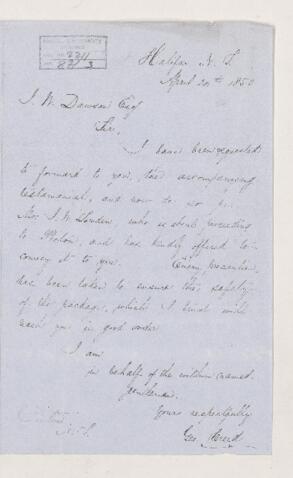 2211
22/3
Halifax N. S.
April 20th 1850
J. W. Dawson Esq
Sir,
I have been requested
to forward to you, the accompanying
testamonial, and now do so per
Mr. J. W. who is about proceeding
to Pictou, and has kindly offered to
convey it to you. Every precaution
has been taken to ensure the safety
of the package, which I trust will
reach you in good order
I am
in behalf of the within named
gentlemen.
Yours respectfully
Geo.
Pictou
N. S.